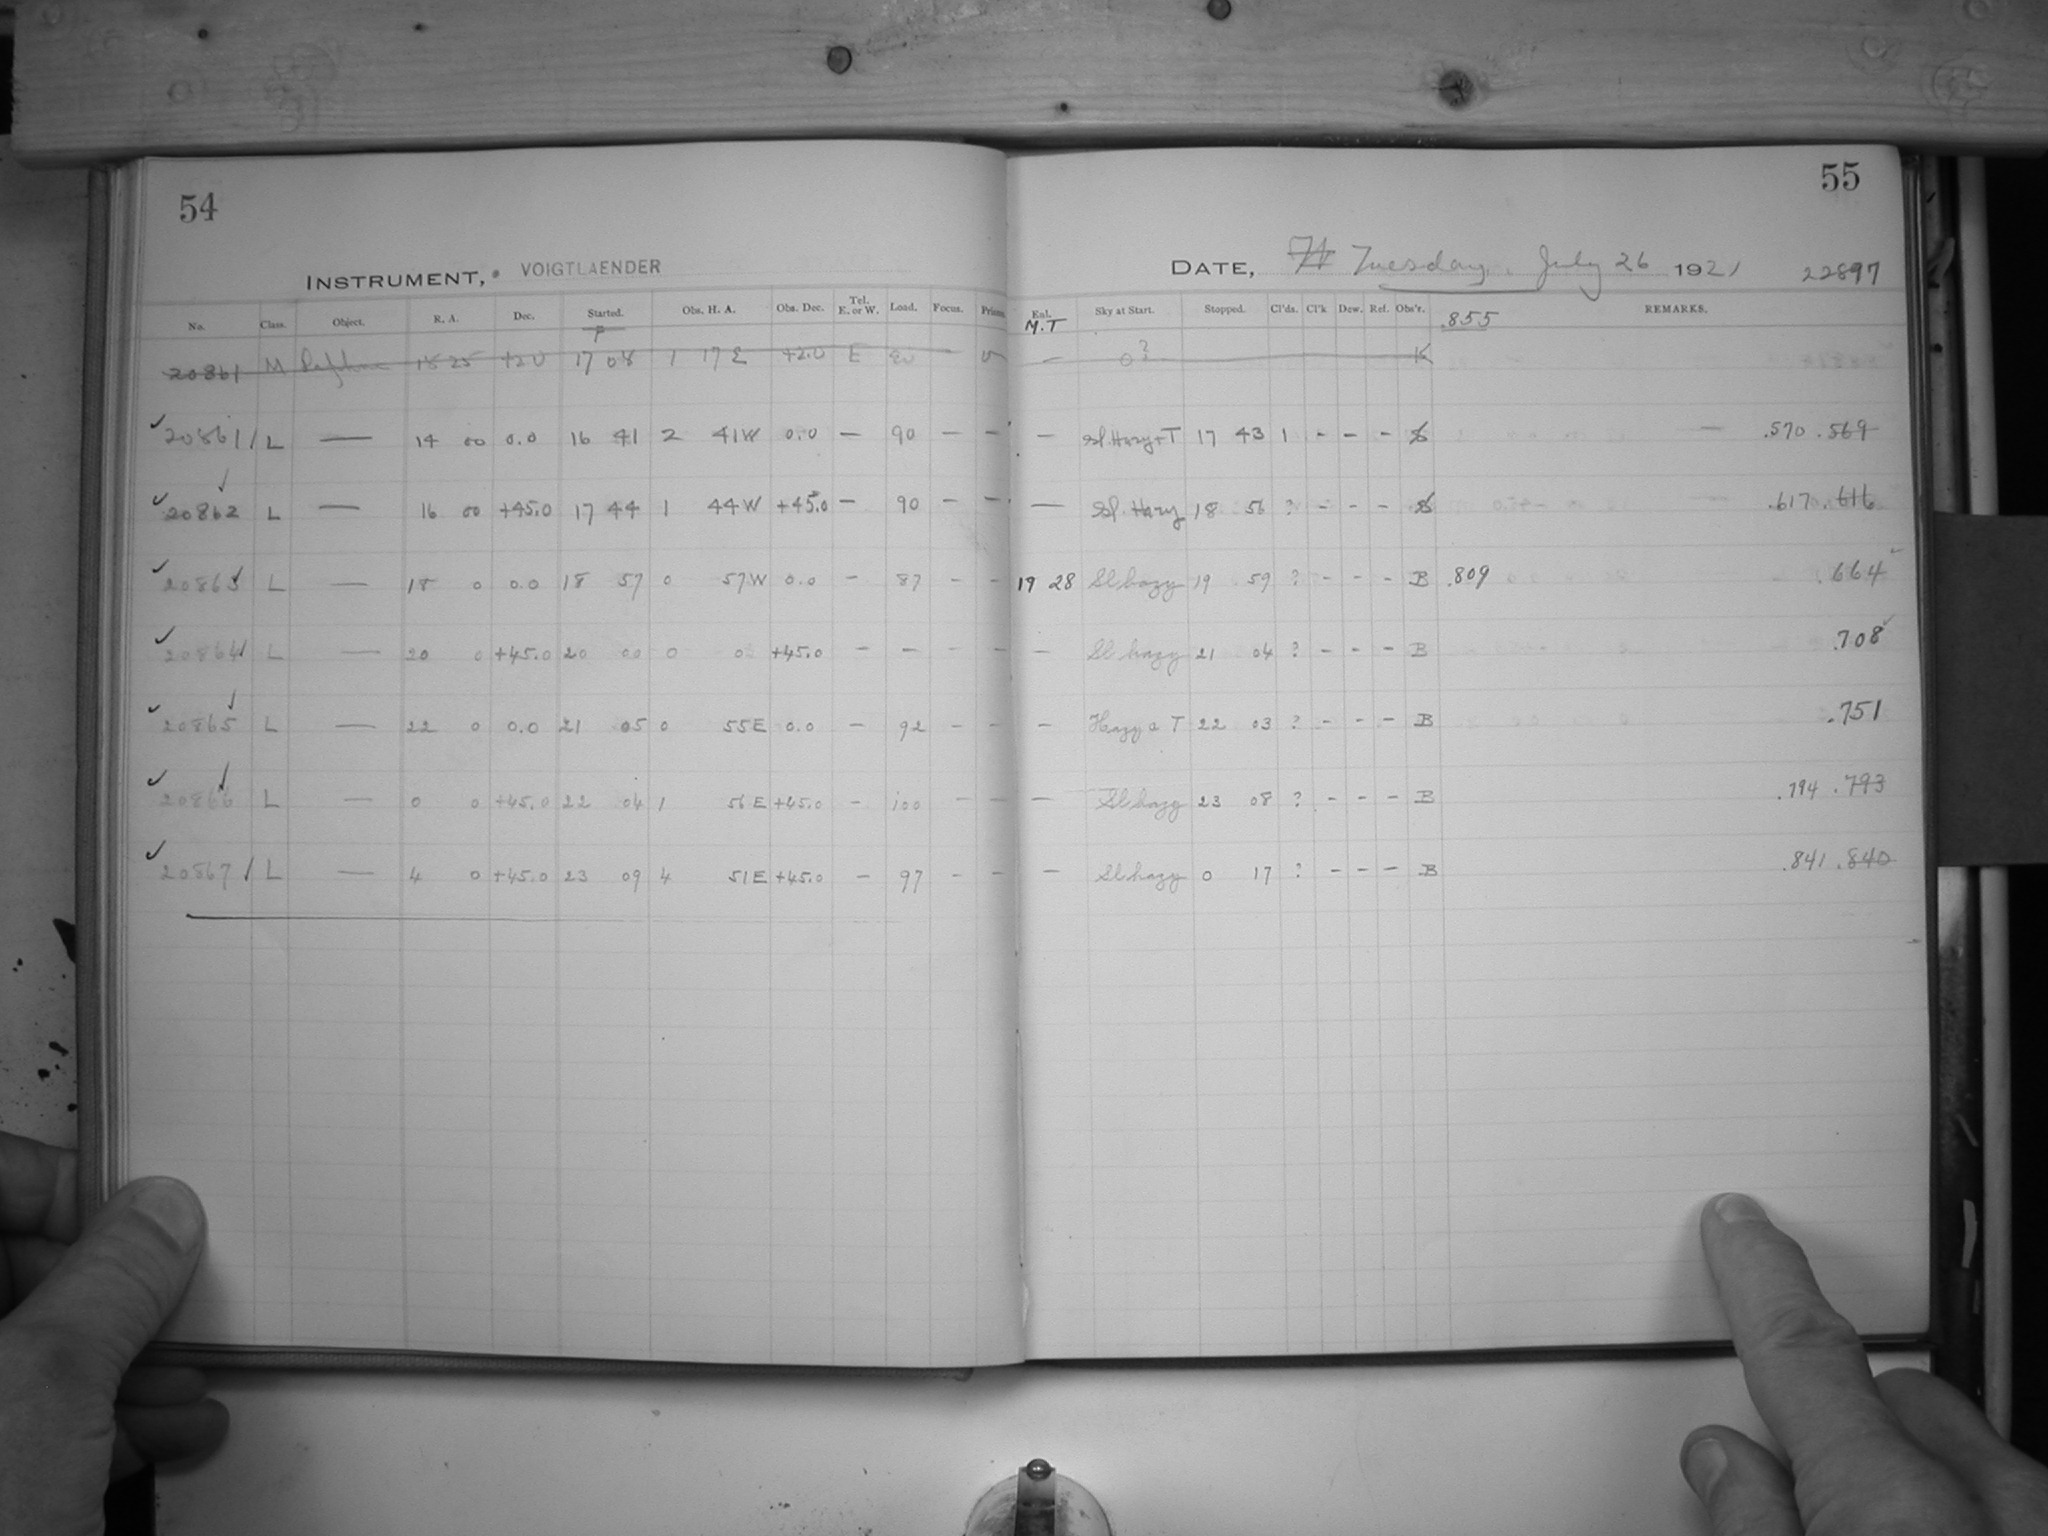 54
INSTRUMENT, VOIGTLAENDER
No. Class. Object. R. A. Dec. Started. Obs. H. A. Obs. Dec. Tel. E. or W. Load. Focus. Prism.
20861 M 18 25 +2.0 17 08 1 17 E +2.0 E
20861 L — 14 00 0.0 16 41 2 41W 0.0 — 90 – –
20862 L — 16 00 +45.0 17 44 1 44W +45.0 — 90 – –
20863 L — 18 0 0.0 18 57 0 57W 0.0 – 87 – –
20864 L — 20 0 +45.0 20 00 0 0 +45.0 – – – –
20865 L — 22 0 0.0 21 05 0 55E 0.0 – 92 – –
20866 L — 0 0 +45.0 22 04 1 56E +45.0 – 100 – –
20867 L — 4 0 +45.0 23 09 4 51E +45.0 – 97 – –
55
DATE, Tuesday, July 26 1921 22897
Enl. Sky at Start. Stopped. Cl'ds. Cl'k Dew. Ref. Obs'r. REMARKS.
M.T .855
— 0? K
— Sl. Hazy + T 17 43 1 – – – — .570 .569
— Sl. Hazy 18 56 ? – – – .617 .616
19 28 Sl hazy 19 59 ? – – – B .809 .664
— Sl hazy 21 04 ? – – – B .708
— Hazy & T 22 03 ? – – – B .751
— Sl hazy 23 08 ? – – – B .794 .793
— Sl hazy 0 17 ? – – – B .841 .840